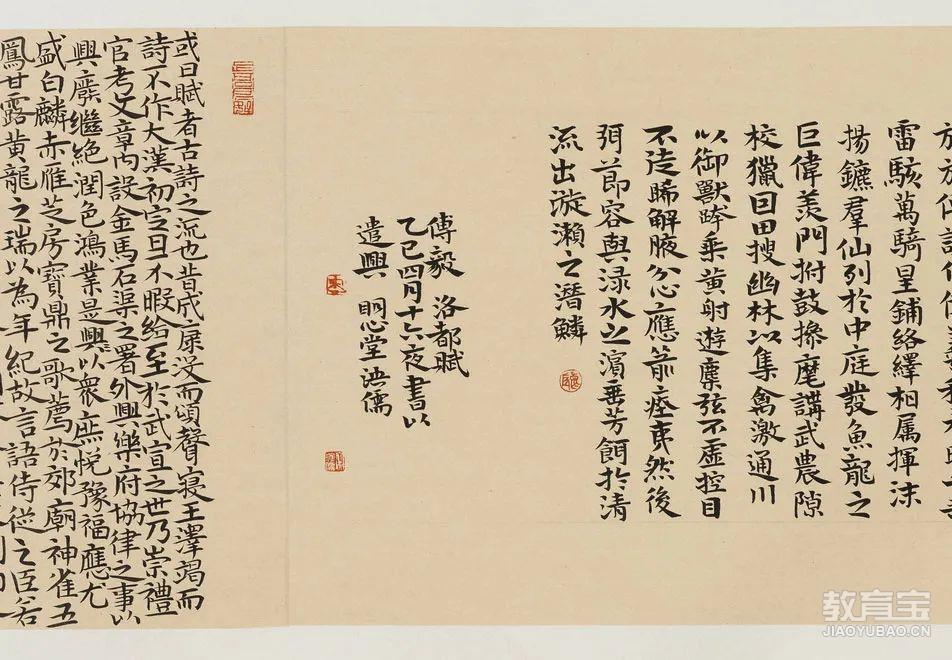 雷駭萬騎星鋪絡繹相属揮沫
揚鑣羣仙列於中庭發魚龍之
巨偉羨門拊鼓操麾講武農隙
校獵因田搜幽林以集禽激通川
以御獸跨乘黄射遊麋弦不虚控目
不徒睎解腋分心應箭殪夷然後
弭節容與渌水之濱垂芳餌於清
流出漩瀨之潛鱗
傅毅 洛都賦
乙巳四月十六夜書以
遣興 明心堂洪儒
或曰賦者古詩之流也昔成康没而頌聲寝王澤竭而
詩不作大漢初定日不暇給至於武宣之世乃崇禮
官考文章内設金馬石渠之署外興樂府協律之事以
興廢繼絶潤色鴻業是興以衆庶悦豫福應尤
盛白麟赤雁芝房寶鼎之歌薦於郊廟神雀五
鳳甘露黄龍之瑞以為年紀故言語侍從之臣若
教育宝
JIAOYUBAO.CN